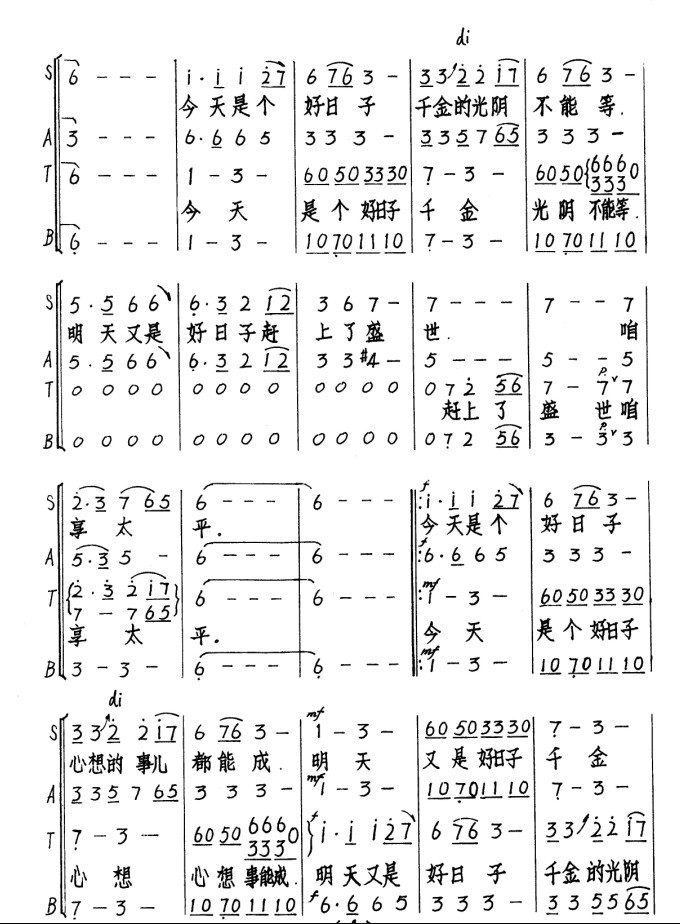 di
S 6 - - - | i· i i 27 | 6 76 3 - | 33 2 2 i7 | 6 76 3 - |
今天是个 好日子 千金的光阴 不能等.
A 3 - - - | 6· 6 6 5 | 3 3 3 - | 3 3 5 7 65 | 3 3 3 - |
T 6 - - - | 1 - 3 - | 60 50 33 30 | 7 - 3 - | 60 50 {6660 3330 |
今天 是个好日子 千金 光阴不能等.
B 6 - - - | 1 - 3 - | 10 70 11 10 | 7 - 3 - | 10 70 11 10 |
S 5· 5 6 6 | 6· 3 2 12 | 3 6 7 - | 7 - - - | 7 - - 7 |
明天又是 好日子赶 上了盛 世. 咱
A 5· 5 6 6 | 6· 3 2 12 | 3 3 #4 - | 5 - - - | 5 - - 5 |
T 0 0 0 0 | 0 0 0 0 | 0 0 0 0 | 0 7 2 56 | 7 - 7 ∨ 7 |
赶上了 盛世咱
B 0 0 0 0 | 0 0 0 0 | 0 0 0 0 | 0 7 2 56 | 3 - 3 ∨ 3 |
S 2· 3 7 65 | 6 - - - | 6 - - - |: f i· i i 27 | 6 76 3 - |
享太 平. 今天是个 好日子
A 5· 3 5 - | 6 - - - | 6 - - - |: f 6· 6 6 5 | 3 3 3 - |
T {2· 3 2 i7 7 - 7 65} | 6 - - - | 6 - - - |: mf 1 - 3 - | 60 50 33 30 |
享太 平. 今天 是个好日子
B 3 - 3 - | 6 - - - | 6 - - - |: mf 1 - 3 - | 10 70 11 10 |
di
S 33 2 2 i7 | 6 76 3 - | mf 1 - 3 - | 60 50 33 30 | 7 - 3 - |
心想的事儿 都能成. 明天 又是好日子 千金
A 3 3 5 7 65 | 3 3 3 - | mf 1 - 3 - | 10 70 11 10 | 7 - 3 - |
T 7 - 3 - | 60 50 6660 3330 | f i· i i 27 | 6 76 3 - | 33 2 2 i7 |
心想 心想事能成. 明天又是 好日子 千金的光阴
B 7 - 3 - | 10 70 11 10 | f 6· 6 6 5 | 3 3 3 - | 3 3 55 65 |